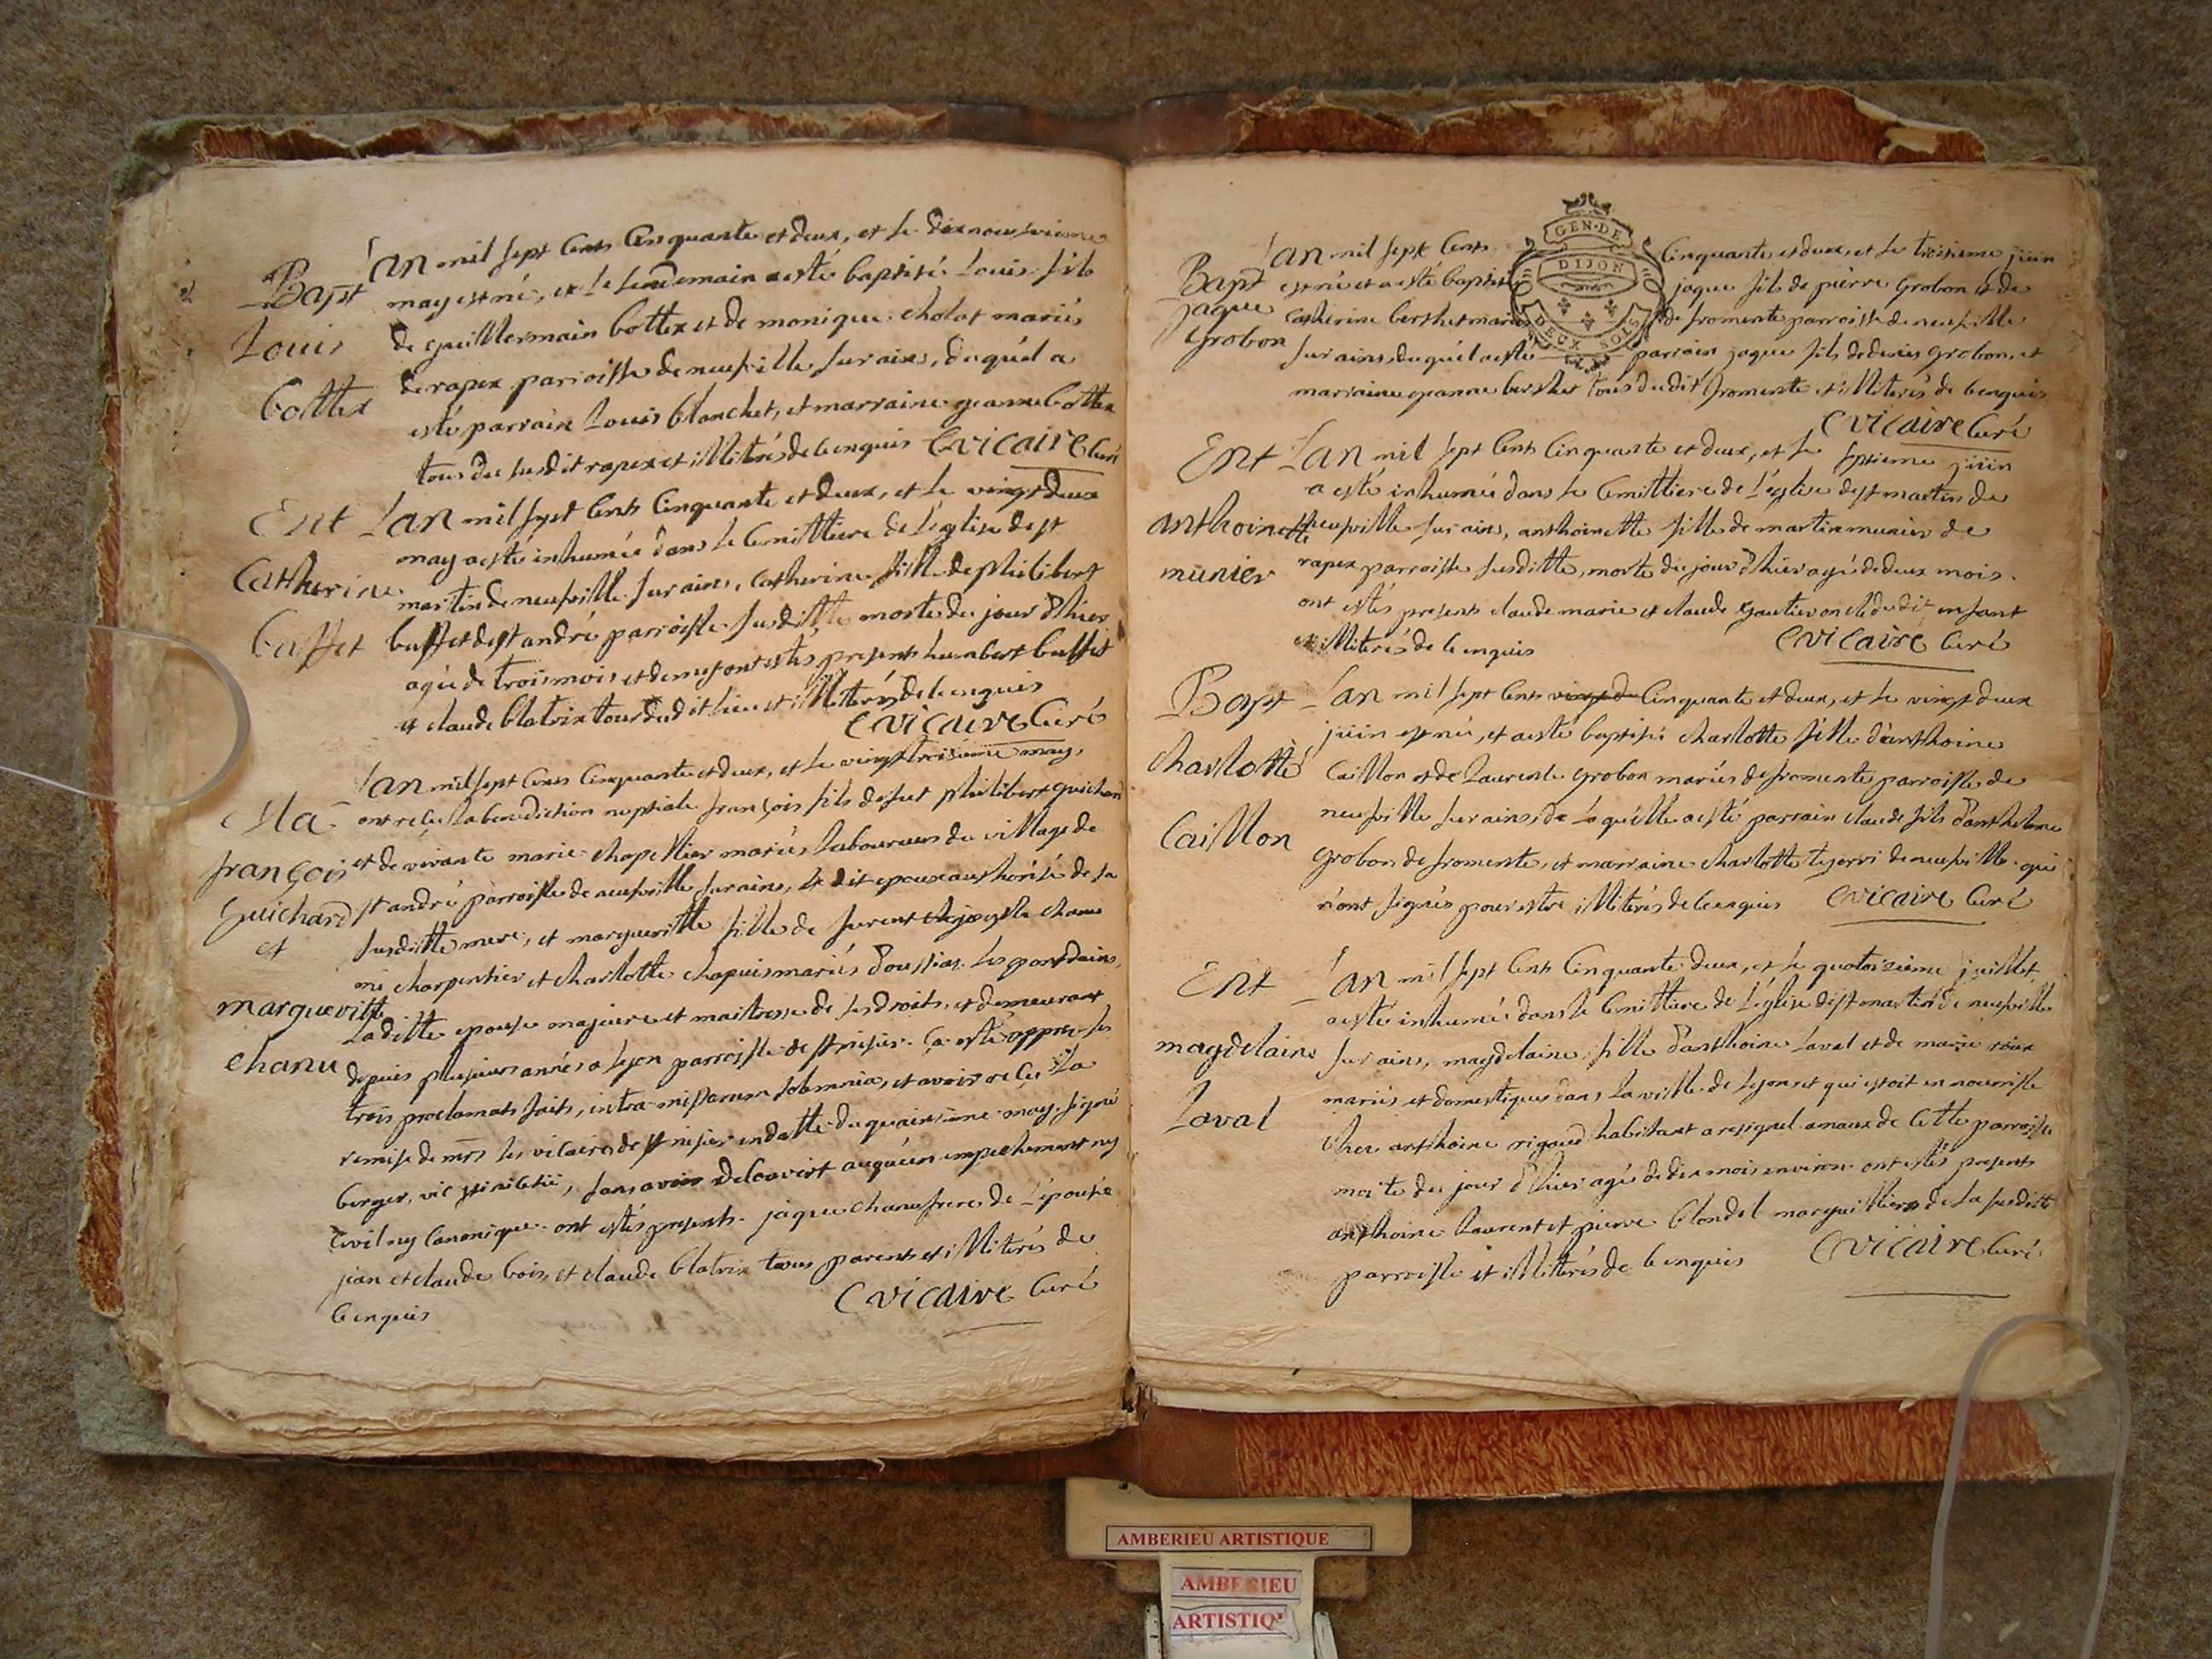 Bapt
Louis
bottex
Lan mil sept cents cinquante et deux, et le dixneuvieme
may est né, et le lendemain a esté baptisé Louis fils
de guillermain bottex et de monique cholat mariés
de rapex parroisse de neufville sur ains, duquél a
esté parrain Louis blanchet, et marraine jeanne bottex
tous du susdit rapex et illiterés de ce enquis Evicaire curé
Ent
Catherine
buffet
Lan mil sept cents cinquante et deux, et le vingt deux
may a esté inhumée dans le cemittiere de l'eglise de st
martin de neufville sur ains, catherine fille de philibert
buffet de st andré parroisse susditte morte du jour d'hier
agée de trois mois et demy ont estés presents humbert buffet
et claude blatrix tous dudit lieu et illiterés de ce enquis
Evicaire curé
Ma
françois
guichard
et
margueritte
chanu
Lan mil sept cents cinquante et deux, et le vingt troisieme may,
ont reçu la benediction nuptiale françois fils de fut philibert guichard
et de vivante marie chapellier mariés laboureurs du village de
st andré parroisse de neufville sur ains, le dit epoux authorisé de sa
susditte mere, et margueritte fille de furent joseph chanu
mé charpentier et charlotte chapuis mariés d'oussiat les pontdains,
laditte epouse majeure et maitresse de ses droits, et demeurant
depuis plusieurs années a lyon parroisse de st nisier. ça esté apprés les
trois proclamats faits, intra missarum solemnia, et avoir reçu la
remise de mrs les vicaires de st nisier en datte du quinzieme may. signé
berger, vic sans avoir decouvert auquun empechement ny
civil ny canonique. ont estés presents. jaque chanu frere de l'épouse
jean et claude bois, et claude blatrix tous parents et illiterés de
ce enquis
Evicaire curé
GEN·DE
DIJON
DEUX SOLS
Bapt
jaque
grobon
Lan mil sept cents cinquante et deux, et le troisieme juin
est né et a esté baptisé jaque fils de pierre grobon et de
catherine berthet mariés de fromente parroisse de neufville
sur ains, duquél a esté parrain jaque fils de denis grobon, et
marraine jeanne berthet tous du dit fromente et illiterés de ce enquis
Evicaire curé
Ent
anthoinette
munier
Lan mil sept cents cinquante et deux, et le septieme juin
a esté inhumée dans le cemittiere de l'église de st martin de
neufville sur ains, anthoinette fille de martin munier de
rapex parroisse susditte, morte du jour d'hier agée de deux mois.
ont estés presents claude marie et claude gautier oncle du dit enfant
et illiterés de ce enquis Evicaire curé
Bapt
charlotte
caillon
Lan mil sept cents vingt du cinquante et deux, et le vingt deux
juin est née, et a esté baptisée charlotte fille d'anthoine
caillon et de laurente grobon mariés de fromente parroisse de
neufville sur ains, de laquélle a esté parrain claude fils d'anthelme
grobon de fromente, et marraine charlotte de neufville qui
n'ont signés pour estre illiterés de ce enquis Evicaire curé
Ent
magdelaine
Laval
Lan mil sept cents cinquante deux, et le quatorzieme juillet
a esté inhumée dans le cemittiere de l'église de st martin de neufville
sur ains, magdelaine, fille d'anthoine Laval et de marie roux
mariés et domestiques dans la ville de lyon et qui estoit en nourrisse
chez anthoine rigaud habitant a resignel annexe de cette parroisse
morte du jour d'hier agée de dix mois environ. ont estés presents
anthoine laurent et pierre blondel marguilliers de la susditte
parroisse et illiterés de ce enquis Evicaire curé
AMBERIEU ARTISTIQUE
AMBERIEU
ARTISTIQ